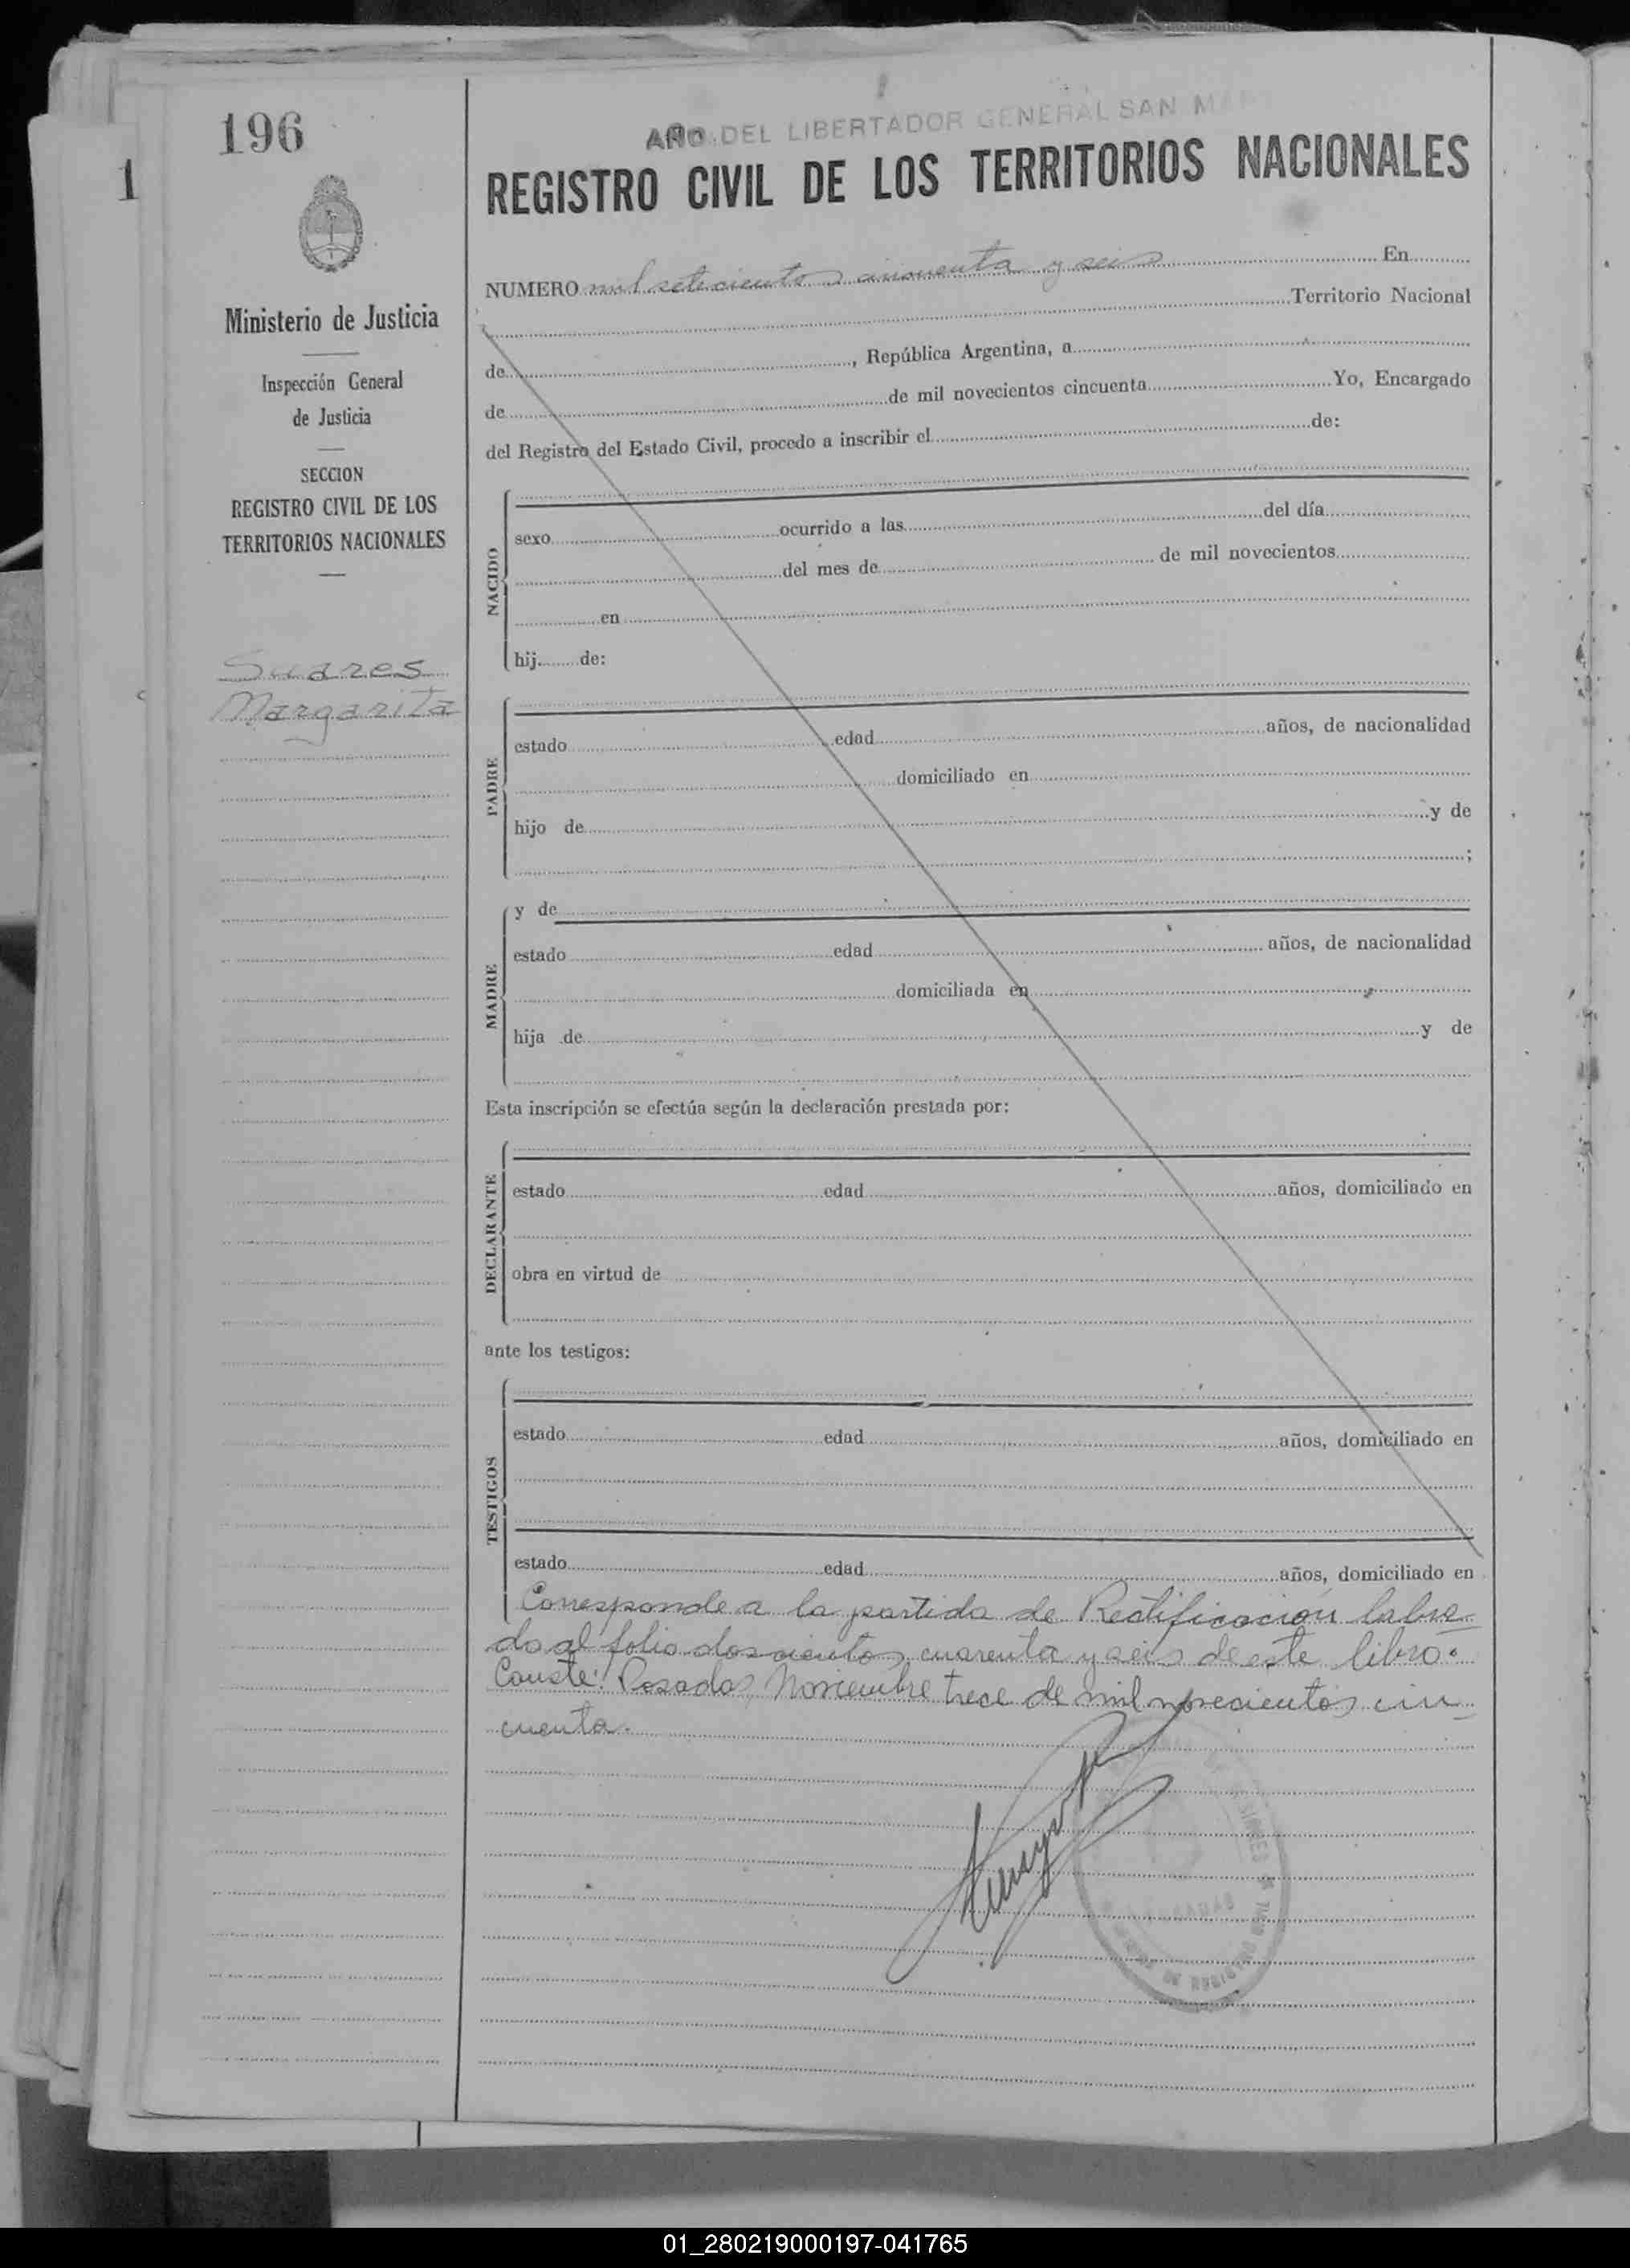 196
1
AÑO DEL LIBERTADOR GENERAL SAN MAR
REGISTRO CIVIL DE LOS TERRITORIOS NACIONALES
Ministerio de Justicia
Inspección General
de Justicia
SECCION
REGISTRO CIVIL DE LOS
TERRITORIOS NACIONALES
Suares
Margarita
NUMERO mil setecientos cincuenta y seis En
Territorio Nacional
de, República Argentina, a
de de mil novecientos cincuenta Yo, Encargado
del Registro del Estado Civil, procedo a inscribir el de:
NACIDO
sexo ocurrido a las del día
del mes de de mil novecientos
en
hij de:
PADRE
estado edad años, de nacionalidad
domiciliado en
hijo de y de
;
MADRE
y de
estado edad años, de nacionalidad
domiciliada en
hija de y de
Esta inscripción se efectúa según la declaración prestada por:
DECLARANTE
estado edad años, domiciliado en
obra en virtud de
ante los testigos:
TESTIGOS
estado edad años, domiciliado en
estado edad años, domiciliado en
Corresponde a la partida de Rectificación labra-
da al folio doscientos cuarenta y seis de este libro.
Conste: Posadas, Noviembre trece de mil novecientos cin-
cuenta.
DE REGISTRO CIVIL
01_280219000197-041765